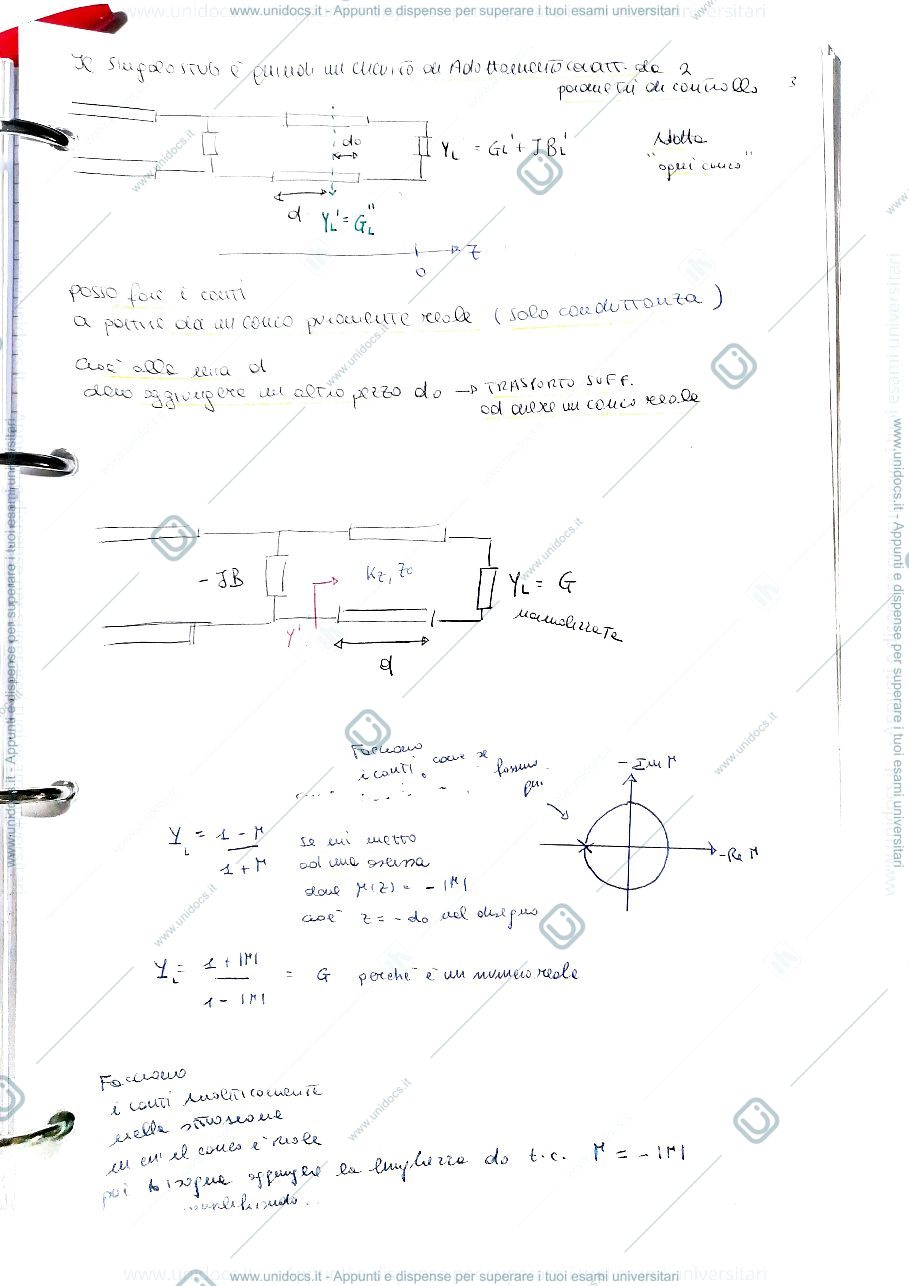 www.unidocs.it - Appunti e dispense per superare i tuoi esami universitari
Il singolo stub è quindi un circuito di Adattamento caratt. da 2
parametri di controllo
3
do
YL' = GL' + JBL'
Adatta
"ogni carico"
d
YL' = GL''
Z
0
posso fare i conti
a partire da un carico puramente reale (solo conduttanza)
cioè alla mia d
devo aggiungere un altro pezzo do → TRASPORTO SUFF.
ad avere un carico reale
- JB
Kz, Zo
YL = G
normalizzata
Y'
d
Facciamo
i conti, come se fossimo
qui
- Im Γ
- Re Γ
YL = 1 - Γ
1 + Γ
se mi metto
ad una ascissa
dove Γ(z) = - |Γ|
cioè z = - do nel disegno
YL = 1 + |Γ|
1 - |Γ|
= G perché è un numero reale
Facciamo
i conti analiticamente
nella situazione
in cui il carico è reale
poi bisogna aggiungere la lunghezza do t.c. Γ = - |Γ|
www.unidocs.it - Appunti e dispense per superare i tuoi esami universitari